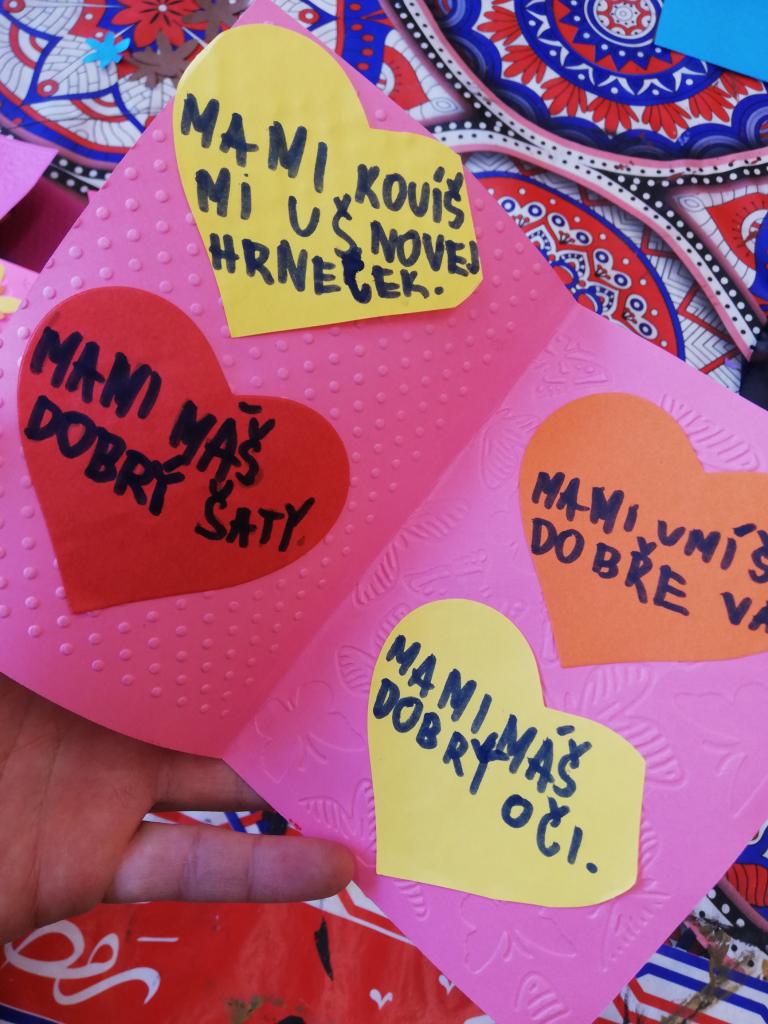 MAMI KOUÍŠ
MI UŠ NOVEJ
HRNEČEK.
MAMI MÁŠ
DOBRÝ ŠATY.
MAMI UMÍŠ
DOBŘE
MAMI MÁŠ
DOBRÝ
OČI.